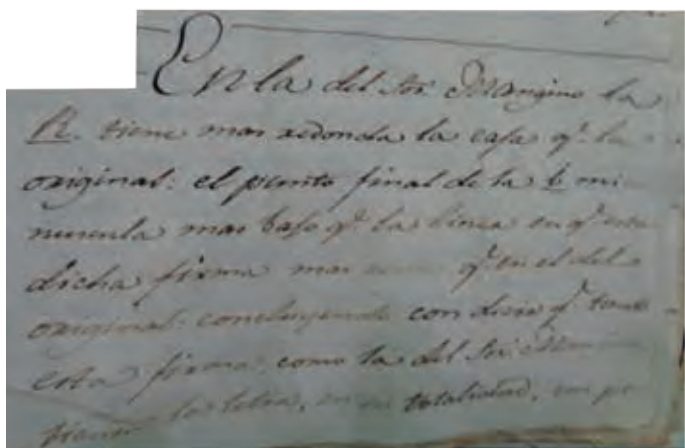 En la del Sor. Mangino la
R. tiene mas redonda la casa qe. la
original: el punto final de la b mi
nuscula mas bajo qe. la linea en qe. esta
dicha firma mas qe. en el del
original: concluyendo con decir qe. tanto
esta firma, como la del Sor.
tienen la letra, en su totalidad,